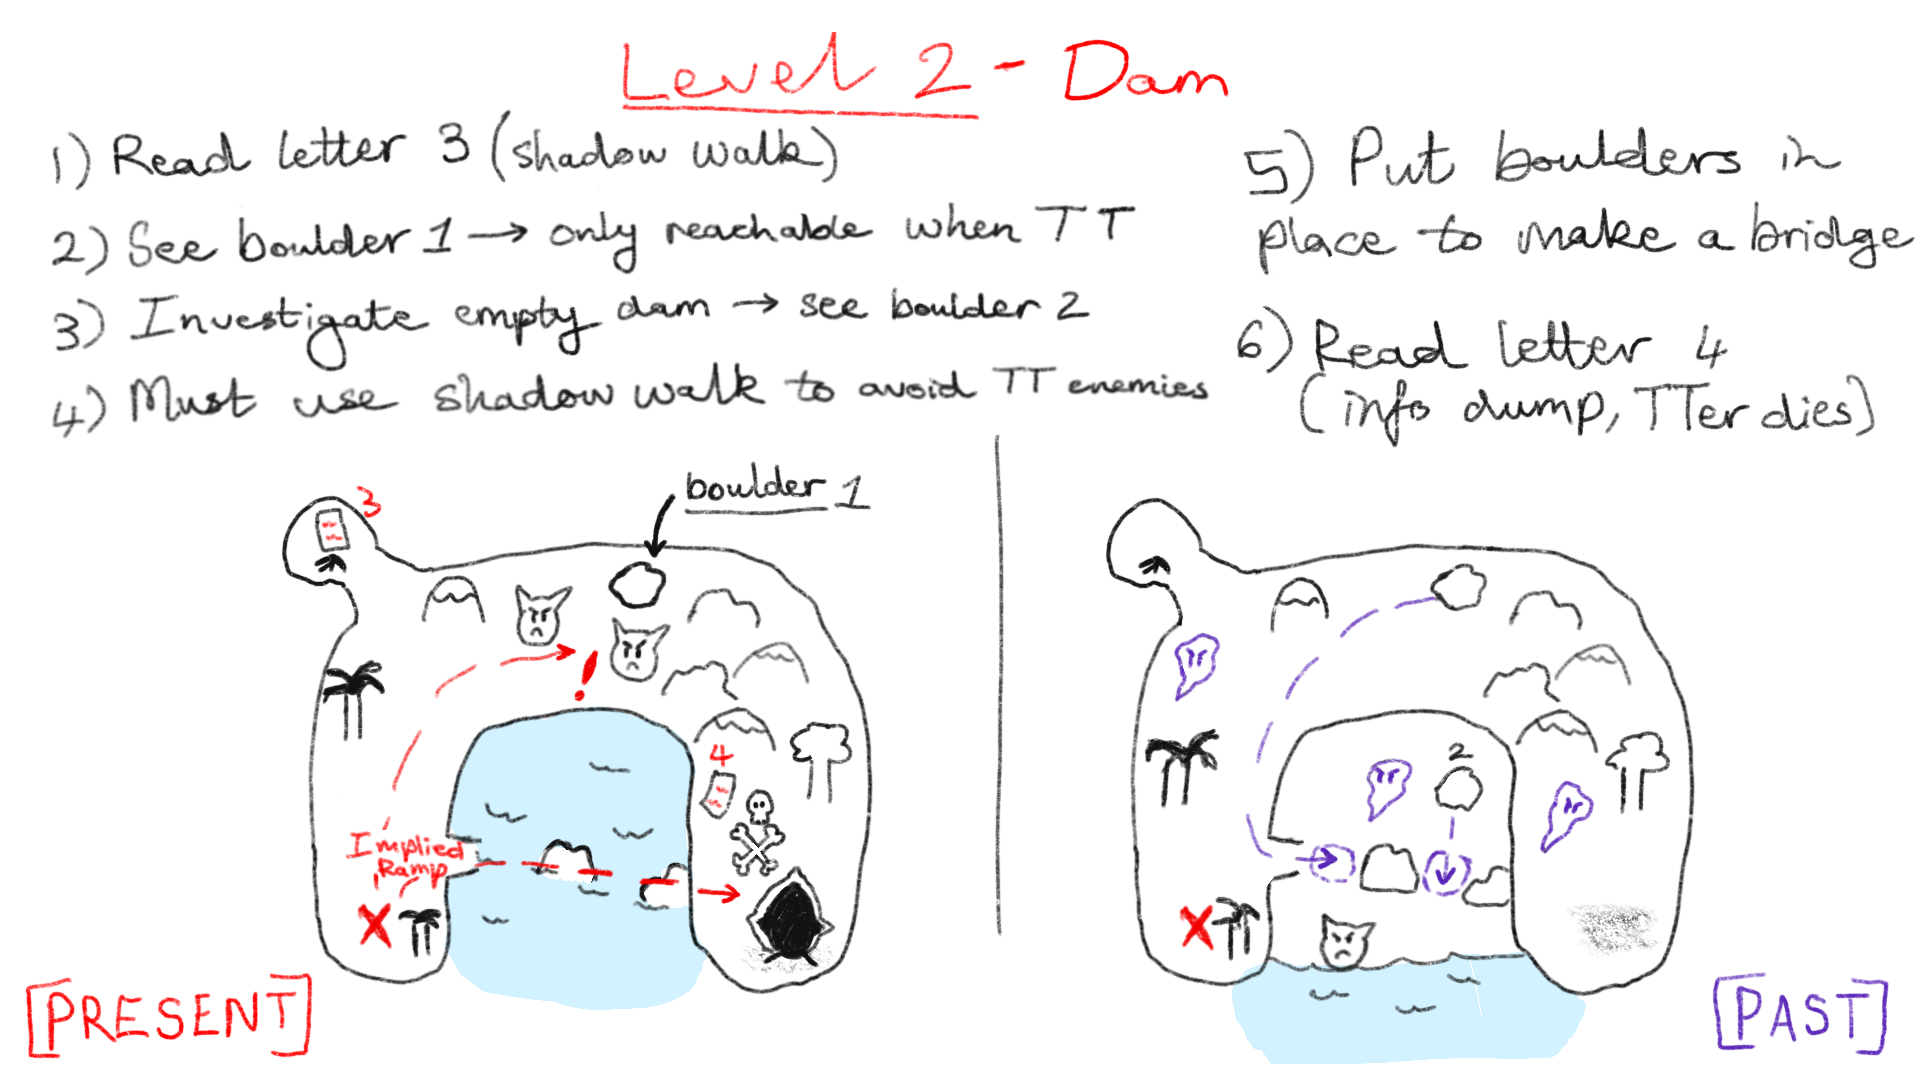 Level 2 - Dam
1) Read letter 3 (shadow walk)
2) See boulder 1 → only reachable when TT
3) Investigate empty dam → see boulder 2
4) Must use shadow walk to avoid TT enemies
5) Put boulders in
place to make a bridge
6) Read letter 4
(info dump, TTer dies)
boulder 1
3
!
4
Implied
Ramp
X
[PRESENT]
2
X
[PAST]